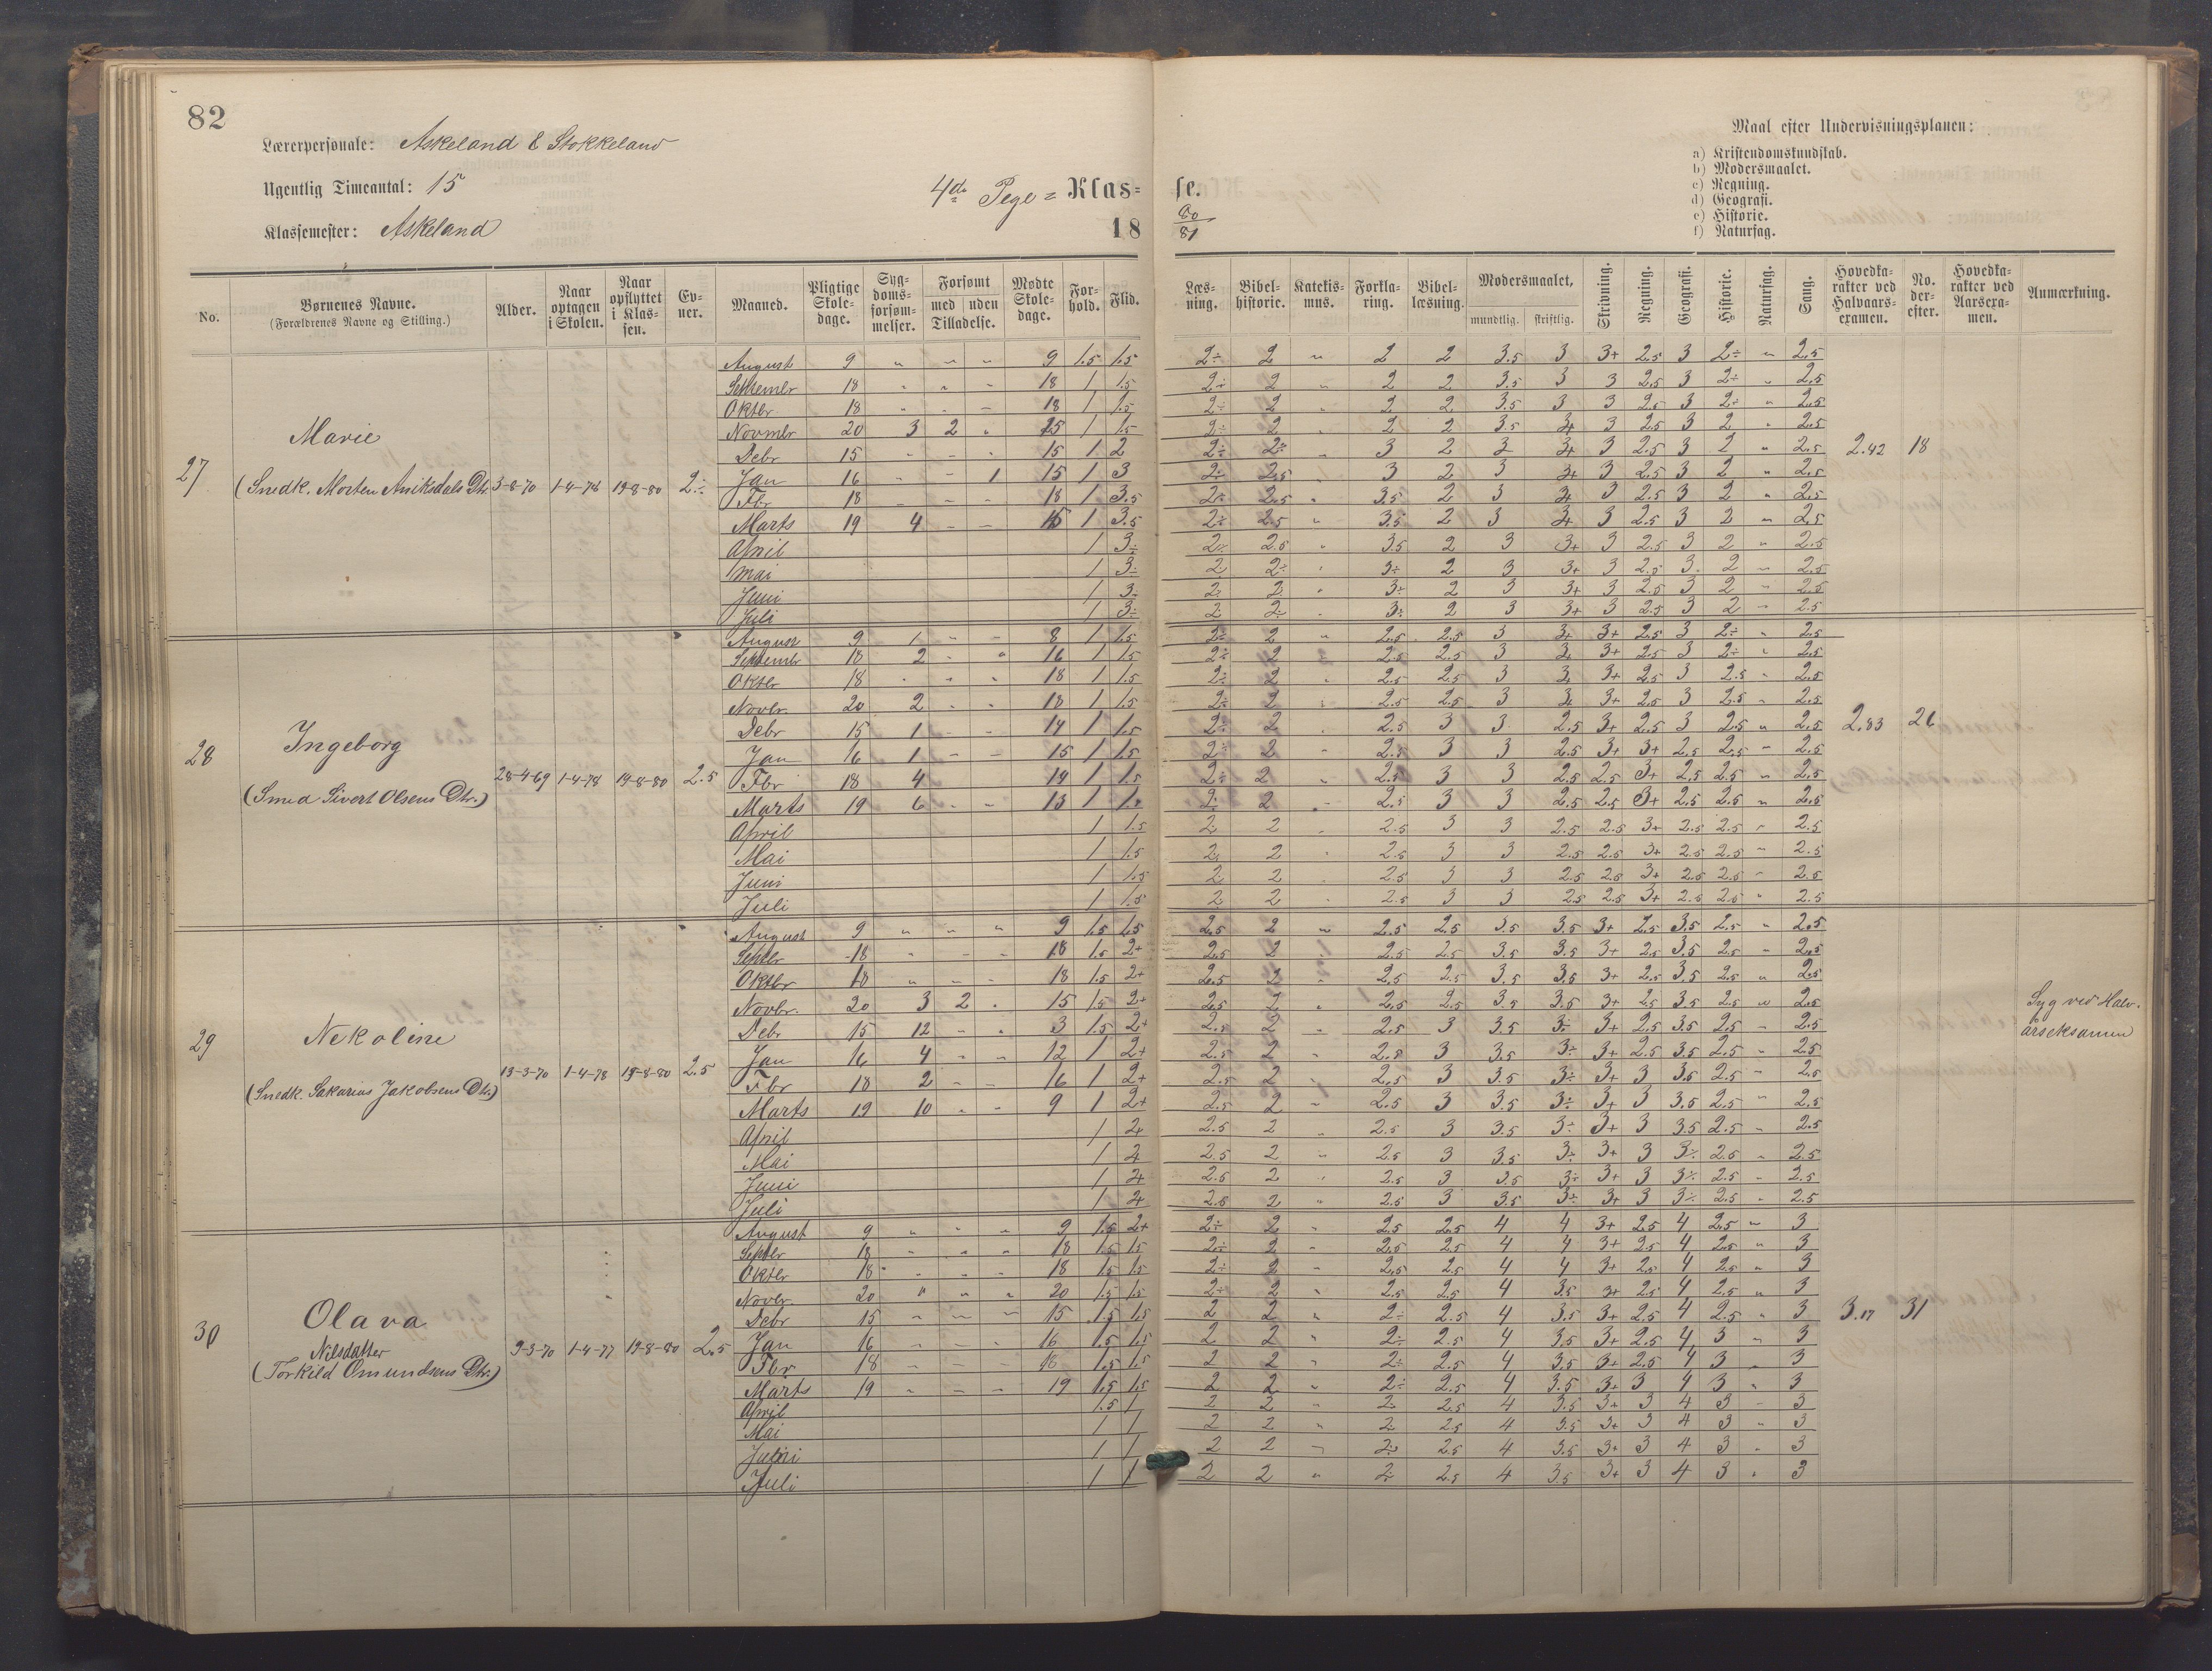 82
Lærerpersonale: Askeland & Stokkeland
Ugentlig Timeantal: 15
Klassemester: Askeland
4de Pege= Klas=
18
se.
80
81
Maal efter Undervisningsplanen:
a) Kristendomskundskab.
b) Modersmaalet.
c) Regning.
d) Geografi.
e) Historie.
f) Naturfag.
No. | Børnenes Navne. (Forældrenes Navne og Stilling.) | Alder. | Naar optagen i Skolen. | Naar opflyttet i Klassen. | Evner. | Maaned. | Pligtige Skoledage. | Sygdomsforsømmelser. | Forsømt med uden Tilladelse. | Mødte Skoledage. | Forhold. | Flid.
Læsning. | Bibelhistorie. | Katekismus. | Forklaring. | Bibellæsning. | Modersmaalet, mundtlig. skriftlig. | Skrivning. | Regning. | Geografi. | Historie. | Naturfag. | Sang. | Hovedkarakter ved Halvaarsexamen. | No. derefter. | Hovedkarakter ved Aarsexamen. | Anmærkning.
27 Marie
(Snedk. Morten Aniksdals Dtr. 3-8-70 1-4-78 19-8-80 2÷
August 9 " " " 9 1.5 1.5 2÷ 2 " 2 2 3.5 3 3+ 2.5 3 2÷ " 2.5
Septembr 18 " " " 18 1 1.5 2÷ 2 " 2 2 3.5 3 3 2.5 3 2÷ " 2.5
Oktbr 18 " " " 18 1 1.5 2÷ 2 " 2 2 3.5 3 3 2.5 3 2÷ " 2.5
Novmbr 20 3 2 " 15 1 1.5 2÷ 2 " 2 2 3.5 3+ 3 2.5 3 2 " 2.5
Debr 15 " " " 15 1 2 2÷ 2÷ " 3 2 3 3+ 3 2.5 3 2 " 2.5 2.42 18
Jan 16 " " 1 15 1 3 2÷ 2.5 " 3 2 3 3+ 3 2.5 3 2 " 2.5
Fbr 18 " " " 18 1 3.5 2÷ 2.5 " 3.5 2 3 3+ 3 2.5 3 2 " 2.5
Marts 19 4 " " 15 1 3.5 2÷ 2.5 " 3.5 2 3 3+ 3 2.5 3 2 " 2.5
April 1 3÷ 2÷ 2.5 " 3.5 2 3 3+ 3 2.5 3 2 " 2.5
Mai 1 3÷ 2 2÷ " 3÷ 2 3 3+ 3 2.5 3 2 " 2.5
Juni 1 3÷ 2 2÷ " 3÷ 2 3 3+ 3 2.5 3 2 " 2.5
Juli 1 3÷ 2 2÷ " 3÷ 2 3 3+ 3 2.5 3 2 " 2.5
28 Ingeborg
(Smed Sivert Olsens Dtr.) 28-4-69 1-4-78 19-8-80 2.5
August 9 1 " " 8 1 1.5 2÷ 2 " 2.5 2.5 3 3+ 3+ 2.5 3 2÷ " 2.5
Septembr 18 2 " " 16 1 1.5 2÷ 2 " 2.5 2.5 3 3+ 3+ 2.5 3 2÷ " 2.5
Oktbr 18 " " " 18 1 1.5 2÷ 2 " 2.5 2.5 3 3+ 3+ 2.5 3 2.5 " 2.5
Novbr. 20 2 " " 18 1 1.5 2÷ 2 " 2.5 2.5 3 3+ 3+ 2.5 3 2.5 " 2.5
Debr 15 1 " " 14 1 1.5 2÷ 2 " 2.5 3 3 2.5 3+ 2.5 3 2.5 " 2.5 2.83 26
Jan 16 1 " " 15 1 1.5 2÷ 2 " 2.5 3 3 2.5 3+ 3+ 2.5 2.5 " 2.5
Fbr 18 4 14 1 1.5 2÷ 2 " 2.5 3 3 2.5 2.5 3+ 2.5 2.5 " 2.5
Marts 19 6 " " 13 1 1.5 2÷ 2 " 2.5 3 3 2.5 2.5 3+ 2.5 2.5 " 2.5
April 1 1.5 2 2 " 2.5 3 3 2.5 2.5 3+ 2.5 2.5 " 2.5
Mai 1 1.5 2 2 " 2.5 3 3 2.5 2.5 3+ 2.5 2.5 " 2.5
Juni 1 1.5 2 2 " 2.5 3 3 2.5 2.5 3+ 2.5 2.5 " 2.5
Juli 1 1.5 2 2 " 2.5 3 3 2.5 2.5 3+ 2.5 2.5 " 2.5
29 Nekoline
(Snedk. Sakarius Jakobsens Dtr.) 13-3-70 1-4-78 19-8-80 2.5
August 9 " " " 9 1.5 1.5 2.5 2 " 2.5 2.5 3.5 3.5 3+ 2.5 3.5 2.5 " 2.5
Septbr 18 " " " 18 1.5 2+ 2.5 2 " 2.5 2.5 3.5 3.5 3+ 2.5 3.5 2.5 " 2.5
Oktbr 18 " " " 18 1.5 2+ 2.5 2 " 2.5 2.5 3.5 3.5 3+ 2.5 3.5 2.5 " 2.5
Novbr. 20 3 2 " 15 1.5 2+ 2.5 2 " 2.5 2.5 3.5 3.5 3+ 2.5 3.5 2.5 " 2.5 Syg ved Halv.
Debr 15 12 " " 3 1.5 2+ 2.5 2 " 2.5 3 3.5 3÷ 3+ 2.5 3.5 2.5 " 2.5 årseksamen
Jan 16 4 " " 12 1 2+ 2.5 2 " 2.5 3 3.5 3÷ 3+ 2.5 3.5 2.5 " 2.5
Fbr 18 2 " " 16 1 2+ 2.5 2 " 2.5 3 3.5 3÷ 3+ 3 3.5 2.5 " 2.5
Marts 19 10 " " 9 1 2+ 2.5 2 " 2.5 3 3.5 3÷ 3+ 3 3.5 2.5 " 2.5
April 1 2+ 2.5 2 " 2.5 3 3.5 3÷ 3+ 3 3.5 2.5 " 2.5
Mai 1 2+ 2.5 2 " 2.5 3 3.5 3÷ 3+ 3 3÷ 2.5 " 2.5
Juni 1 2+ 2.5 2 " 2.5 3 3.5 3÷ 3+ 3 3÷ 2.5 " 2.5
Juli 1 2+ 2.5 2 " 2.5 3 3.5 3÷ 3+ 3 3÷ 2.5 " 2.5
30 Olava
Nilsdatter
(Torkild Omundsens Dtr.) 9-3-70 1-4-77 19-8-80 2.5
August 9 " " " 9 1.5 2+ 2÷ 2 " 2.5 2.5 4 4 3+ 2.5 4 2.5 " 3
Septbr 18 " " " 18 1.5 1.5 2÷ 2 " 2.5 2.5 4 4 3+ 2.5 4 2.5 " 3
Oktbr 18 " " " 18 1.5 1.5 2÷ 2 " 2.5 2.5 4 4 3+ 2.5 4 2.5 " 3
Novbr. 20 " " " 20 1.5 1.5 2÷ 2 " 2.5 2.5 4 3.5 3+ 2.5 4 2.5 " 3
Debr 15 " " " 15 1.5 1.5 2 2 " 2÷ 2.5 4 3.5 3+ 2.5 4 2.5 " 3 3.17 31
Jan 16 " " " 16 1.5 1.5 2 2 " 2÷ 2.5 4 3.5 3+ 2.5 4 3 " 3
Fbr 18 " " " 18 1.5 1.5 2 2 " 2÷ 2.5 4 3.5 3+ 2.5 4 3 " 3
Marts 19 " " " 19 1.5 1.5 2 2 " 2÷ 2.5 4 3.5 3+ 3 4 3 " 3
April 1.5 1 2 2 " 2 2.5 4 3.5 3+ 3 4 3 " 3
Mai 1 1 2 2 " 2 2.5 4 3.5 3+ 3 4 3 " 3
Juni 1 1 2 2 " 2 2.5 4 3.5 3+ 3 4 3 " 3
Juli 1 1 2 2 " 2 2.5 4 3.5 3+ 3 4 3 " 3